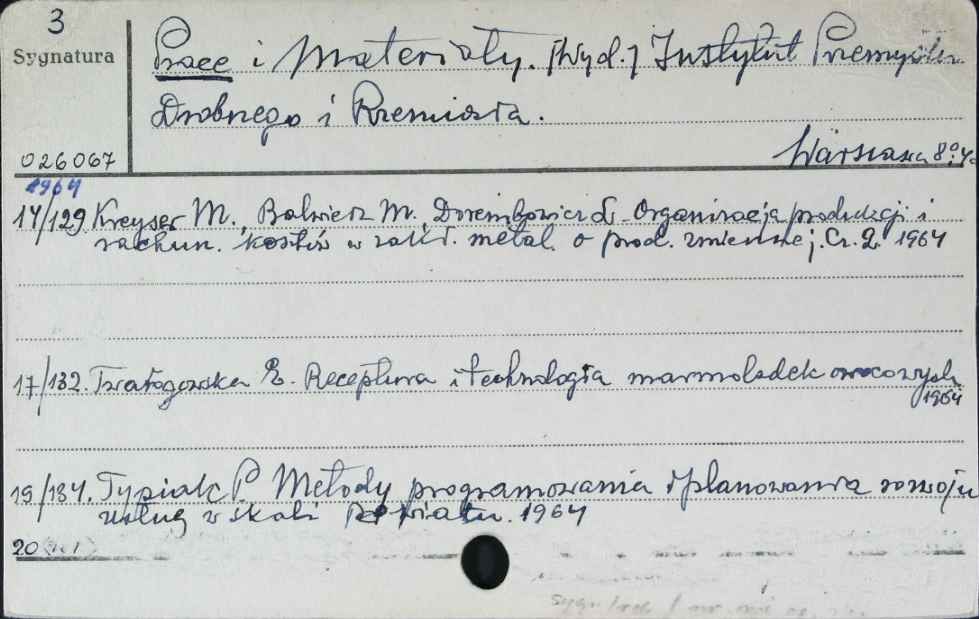 3
Sygnatura
Prace i Materiały. [Wyd.] Instytut Przemysłu
Drobnego i Rzemiosła.
026067
Warszawa 8°.
1964
14/129 Kreyser M., Balwierz M., Organizacja produkcji i
rachun. kosztów w zakł. metal. o prod. zmiennej. Cz. 2. 1964
17/132. E. Receptura i technologia marmoladek owocowych
1964
19/134. Typiak P. Metody programowania i planowania rozwoju
usług w skali powiatu. 1964
20